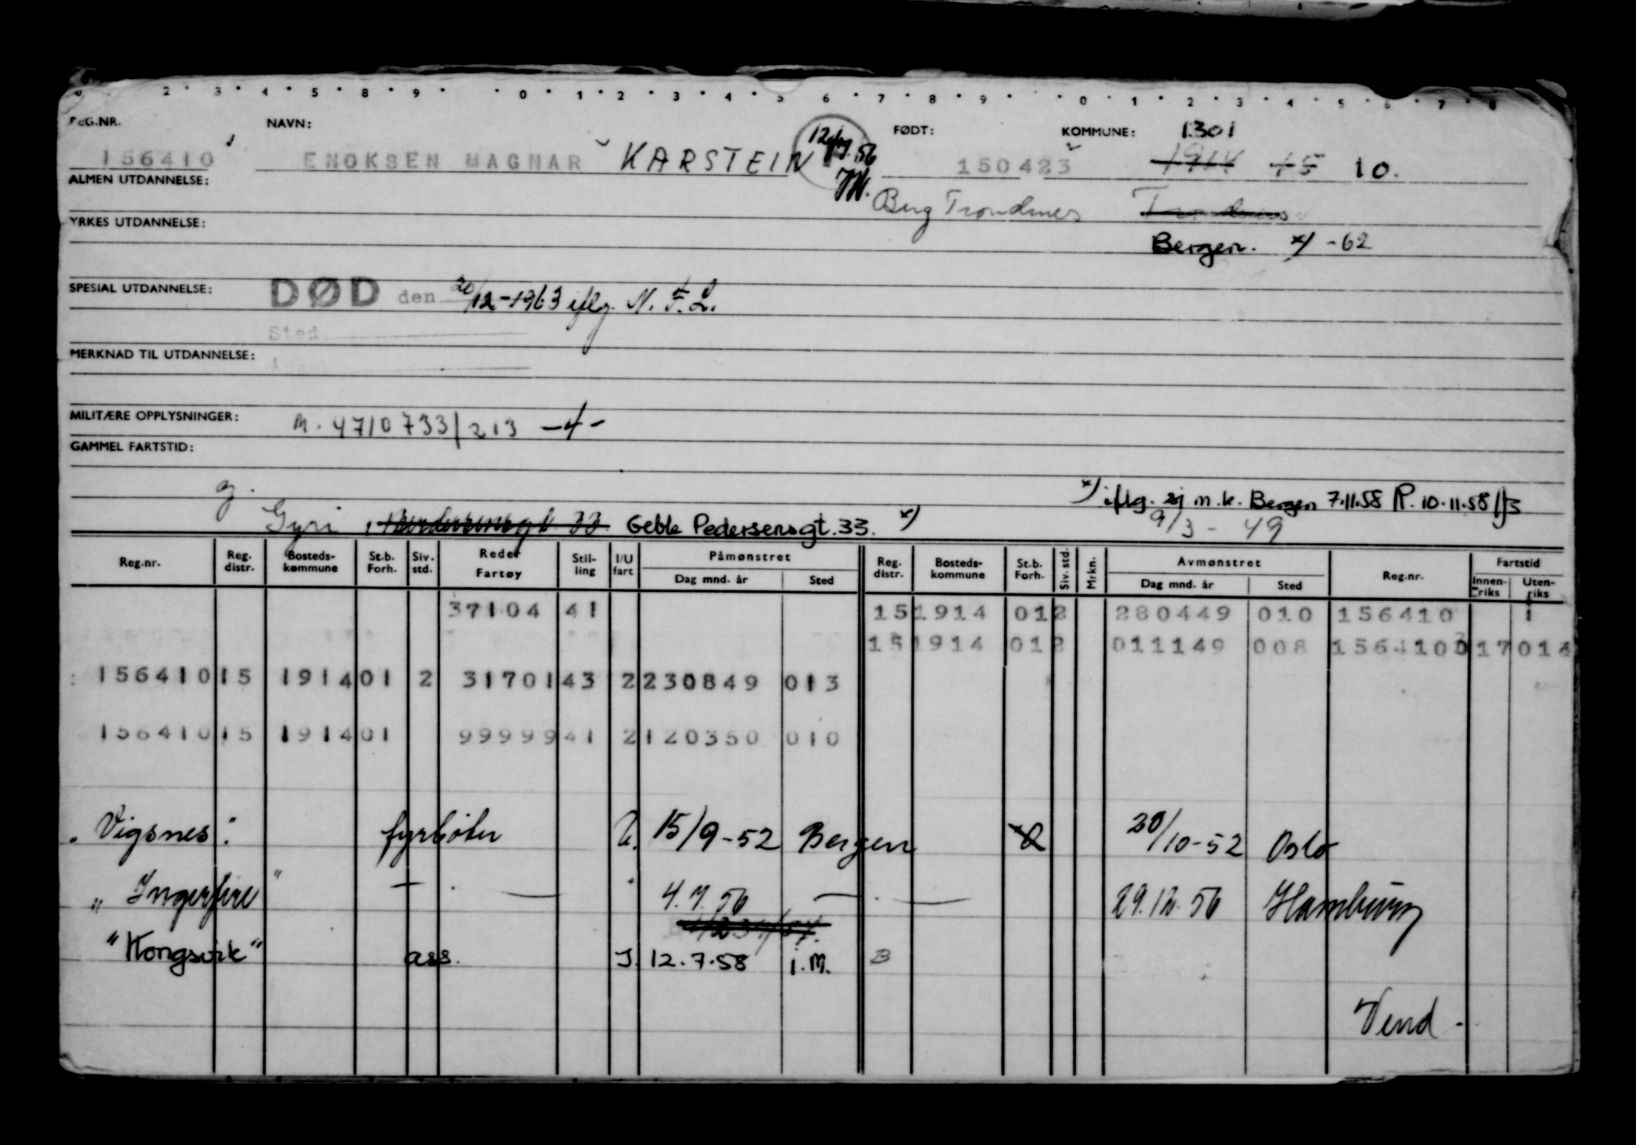 2 · 3 · 4 · 5 · 8 · 9 · · 0 · 1 · 2 · 3 · 4 · 5 6 · 7 · 8 · 9 · · 0 · 1 · 2 · 3 · 4 · 5 · 6 · 7 · 8
REG.NR. NAVN: FØDT: KOMMUNE: 1301
156410 ENOKSEN MAGNAR KARSTEIN 150423 1914 15 10.
ALMEN UTDANNELSE: Berg Trondenes
YRKES UTDANNELSE: Bergen. x) -62
SPESIAL UTDANNELSE: DØD den 20/12-1963 iflg. N.F.L.
Sted
MERKNAD TIL UTDANNELSE:
MILITÆRE OPPLYSNINGER: M. 4710733/213 -4-
GAMMEL FARTSTID:
g. x) iflg. sj m.k. Bergen 7.11.58 R. 10.11.58
Gyri, Geble Pedersensgt. 33. x) 9/3 - 49
Reg.nr. Reg. distr. Bosteds-kommune St.b. Forh. Siv. std. Reder Fartøy Stil-ling I/U fart Påmønstret Reg. distr. Bosteds-kommune St.b. Forh. Siv. std. Mrkn. Avmønstret Reg.nr. Fartstid
Dag mnd. år Sted Dag mnd. år Sted Innen-riks Uten-riks
37104 41 15 1914 01 2 280449 010 156410 1
15 1914 01 2 011149 008 156410 17 014
156410 15 1914 01 2 31701 43 2 230849 013
156410 15 1914 01 99999 41 2 120350 010
"Vigsnes". fyrbøter U. 15/9-52 Bergen 20/10-52 Oslo
"Ingerfire" — . — " 4.7.56 — . — 29.12.56 Hamburg
"Kongsvik" ass. I. 12.7.58 i.M. B
Vend.